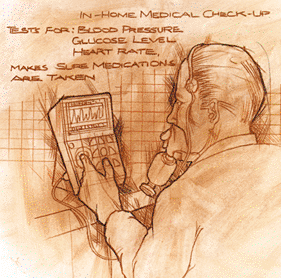 In-Home Medical Check-Up
Tests for: Blood Pressure
Glucose Level
Heart Rate,
Makes Sure Medications
Are Taken